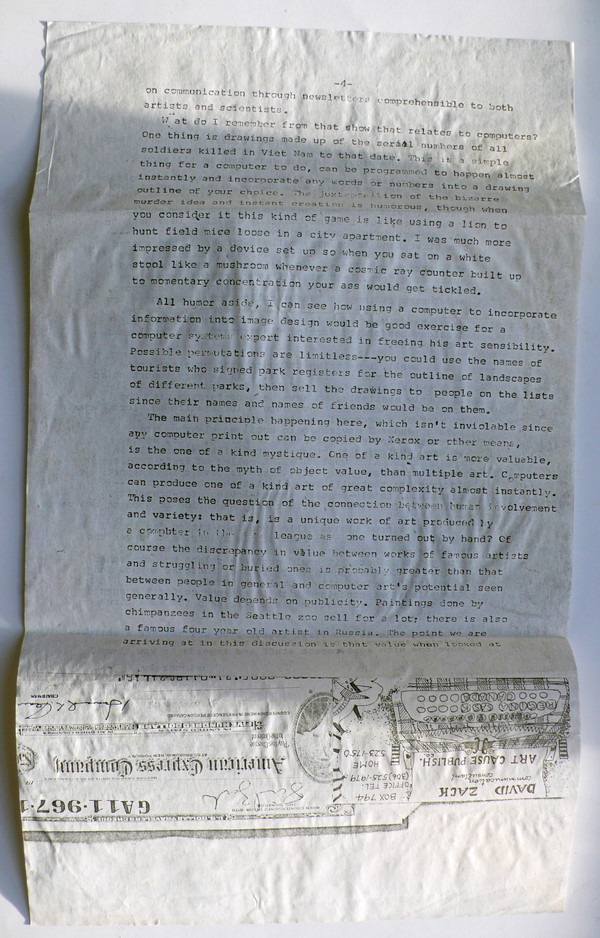 -4-
on communication through newsletters comprehensible to both
artists and scientists.
What do I remember from that show that relates to computers?
One thing is drawings made up of the serial numbers of all
soldiers killed in Viet Nam to that date. This is a simple
thing for a computer to do, can be programmed to happen almost
instantly and incorporate any words or numbers into a drawing
outline of your choice. The juxtaposition of the bizarre
murder idea and instant creation is humorous, though when
you consider it this kind of game is like using a lion to
hunt field mice loose in a city apartment. I was much more
impressed by a device set up so when you sat on a white
stool like a mushroom whenever a cosmic ray counter built up
to momentary concentration your ass would get tickled.
All humor aside, I can see how using a computer to incorporate
information into image design would be good exercise for a
computer systems expert interested in freeing his art sensibility.
Possible permutations are limitless---you could use the names of
tourists who signed park registers for the outline of landscapes
of different parks, then sell the drawings to people on the lists
since their names and names of friends would be on them.
The main principle happening here, which isn't inviolable since
any computer print out can be copied by Xerox or other means,
is the one of a kind mystique. One of a kind art is more valuable,
according to the myth of object value, than multiple art. Computers
can produce one of a kind art of great complexity almost instantly.
This poses the question of the connection between human involvement
and variety: that is, is a unique work of art produced by
a computer in the league as one turned out by hand? Of
course the discrepancy in value between works of famous artists
and struggling or buried ones is probably greater than that
between people in general and computer art's potential seen
generally. Value depends on publicity. Paintings done by
chimpanzees in the Seattle zoo sell for a lot; there is also
a famous four year old artist in Russia. The point we are
arriving at in this discussion is that value when looked at
DAVID ZACK
ART CAUSE PUBLISH.
REGINA SASK
CANADA
BOX 794
OFFICE TEL.
HOME
525-1750
GA11-967-1
American Express Company
CHAIRMAN